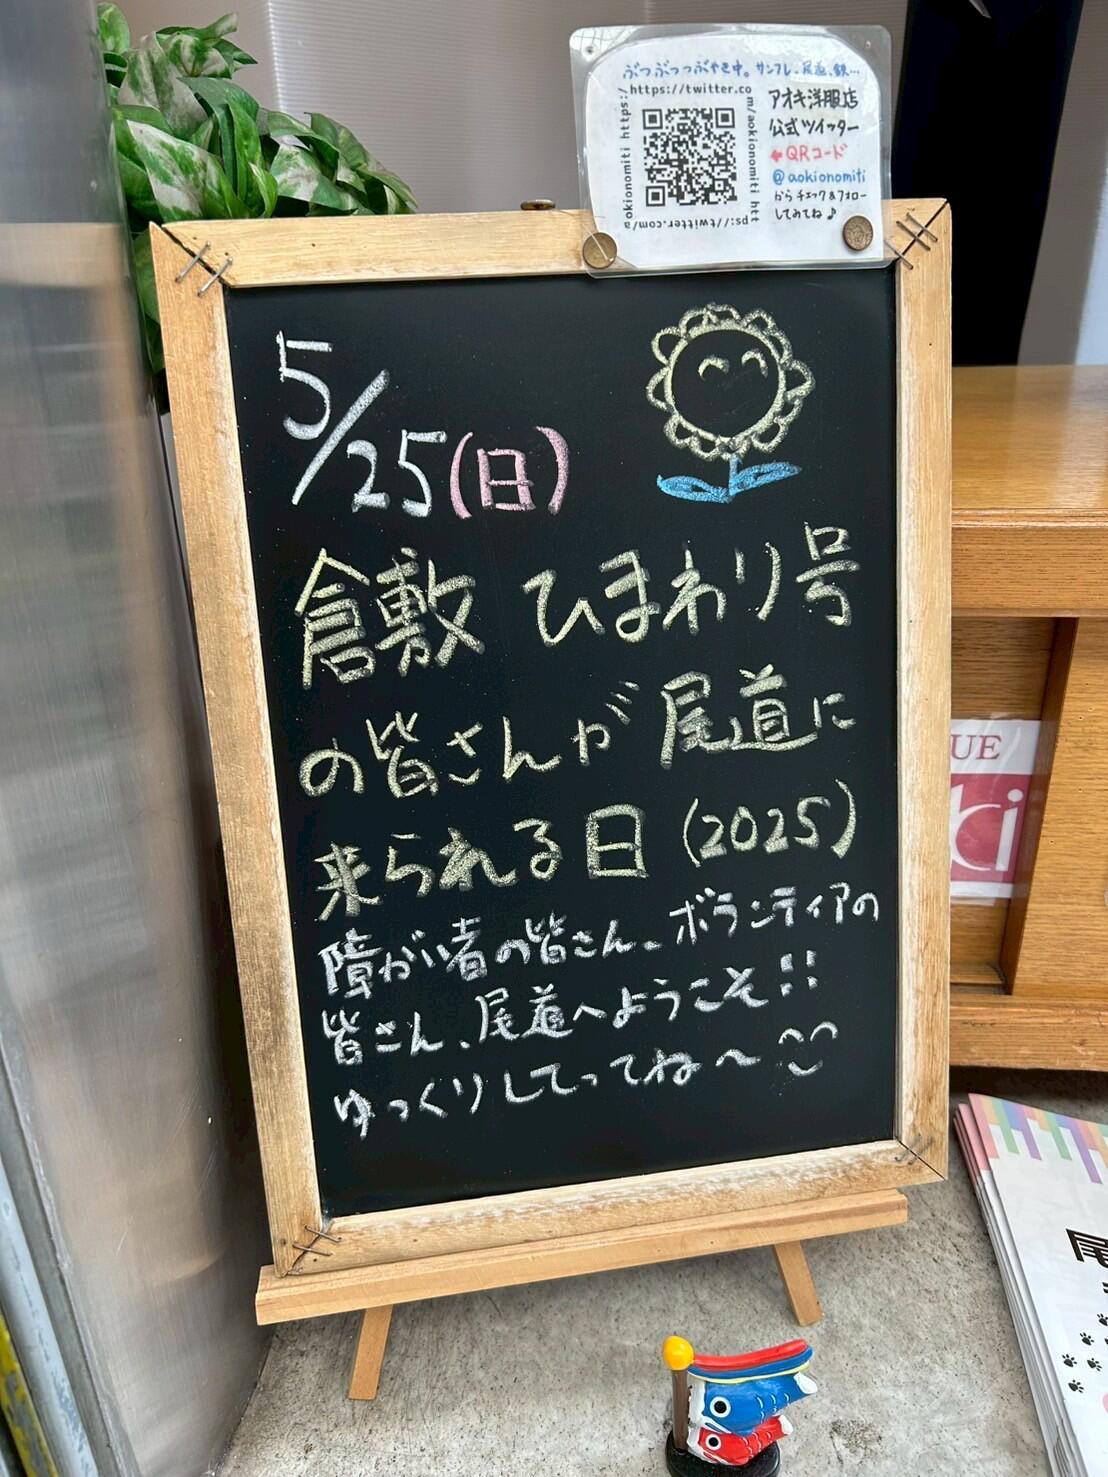 ぶつぶつつぶやき中。サンフレ、尾道、鉄…
https://twitter.co
m/aokionomiti htt
ps://twitter.com/
aokionomiti https:/
アオキ洋服店
公式ツイッター
←QRコード
@aokionomiti
からチェック&フォロー
してみてね♪
5/25(日)
倉敷 ひまわり号
の皆さんが尾道に
来られる日(2025)
障がい者の皆さん、ボランティアの
皆さん、尾道へようこそ!!
ゆっくりしてってね〜
UE
ki
尾